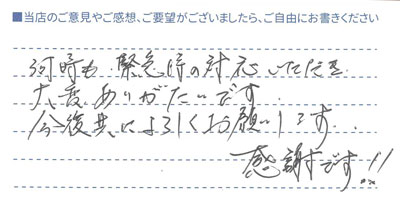 ■当店のご意見やご感想、ご要望がございましたら、ご自由にお書きください
何時も 緊急時の対応いただき
大変ありがたいです
今後共によろしくお願いします.
感謝です!!